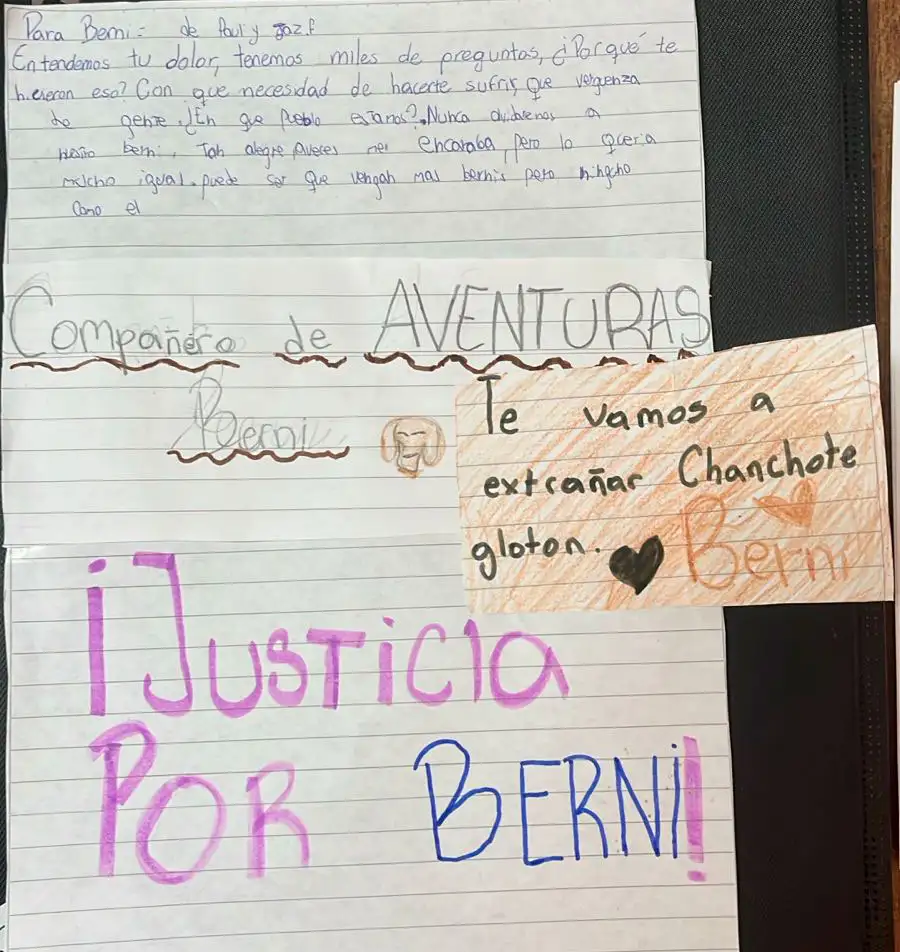 Para Berni= de Paul y Jaz.f
Entendemos tu dolor, tenemos miles de preguntas, ¿Por qué te
hicieron eso? Con que necesidad de hacerte sufrir, que verguenza
de gente. ¿En que pueblo estamos?. Nunca olvidaremos a
nuestro berni, Tan alegre Aveces me encaraba, pero lo queria
mucho igual. puede ser que vengan mas bernis pero ninguno
Como el
Compañero de AVENTURAS
Berni
Te vamos a
extrañar Chanchote
gloton.
Berni
¡JUSTiCIa
POR BERNi!